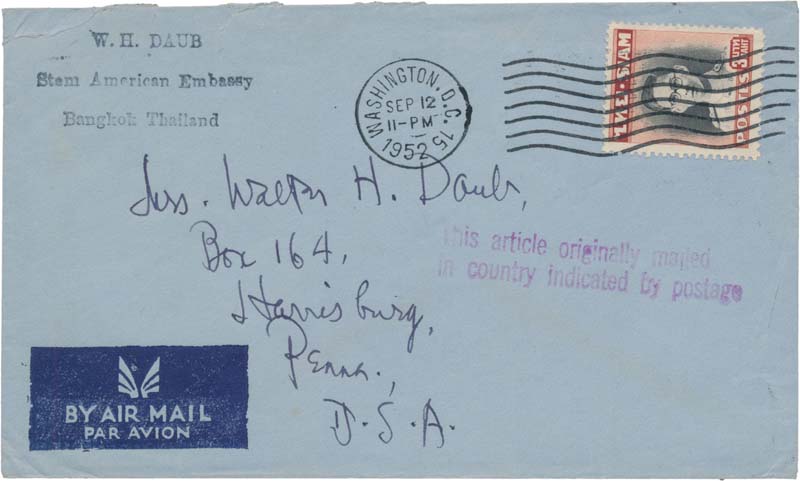 W. H. DAUB
Stem American Embassy
Bangkok Thailand
WASHINGTON, D.C. 15
SEP 12
11-PM
1952
SIAM
POSTES
3
BAHT
Mrs. Walter H. Daub,
Box 164,
Harrisburg,
Penna.,
U.S.A.
This article originally mailed
in country indicated by postage
BY AIR MAIL
PAR AVION